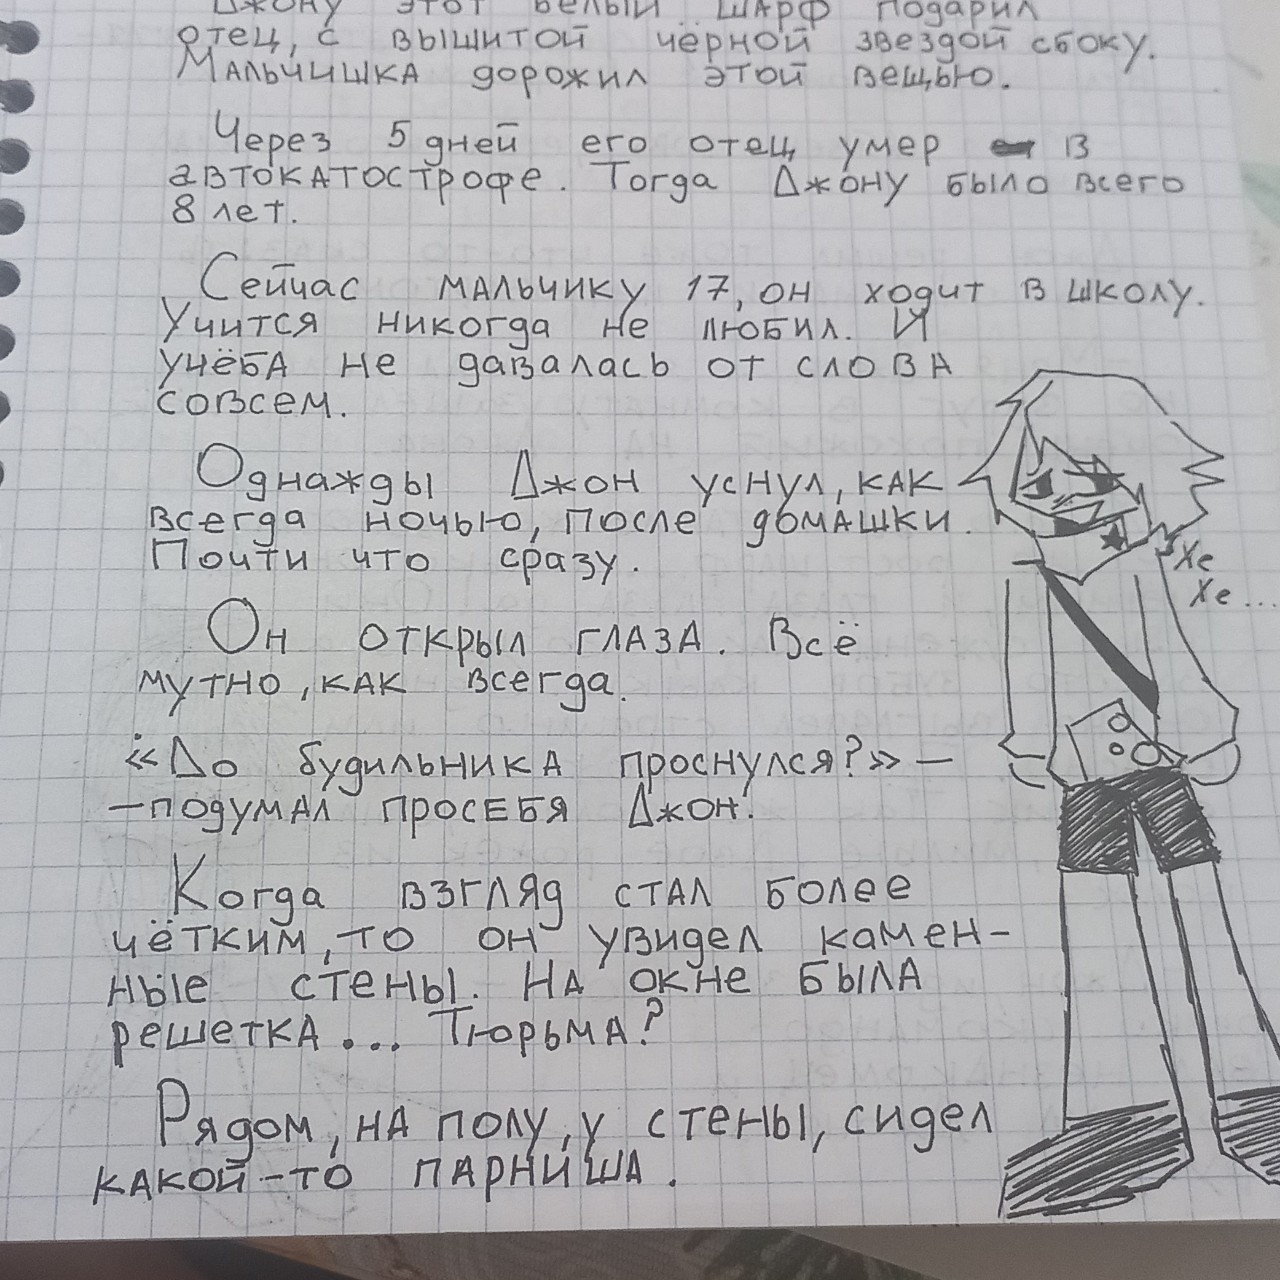 Джону этот белый шарф подарил
отец, с вышитой чёрной звездой сбоку.
Мальчишка дорожил этой вещью.
Через 5 дней его отец умер в
автокатострофе. Тогда Джону было всего
8 лет.
Сейчас мальчику 17, он ходит в школу.
Учится никогда не любил. И
учёба не давалась от слова
совсем.
Однажды Джон уснул, как
всегда ночью, после домашки.
Почти что сразу.
Хе
Хе...
Он открыл глаза. Всё
мутно, как всегда.
«До будильника проснулся?» —
—подумал просебя Джон.
Когда взгляд стал более
чётким, то он увидел камен-
ные стены. На окне была
решетка... Тюрьма?
Рядом, на полу, у стены, сидел
какой-то парниша.